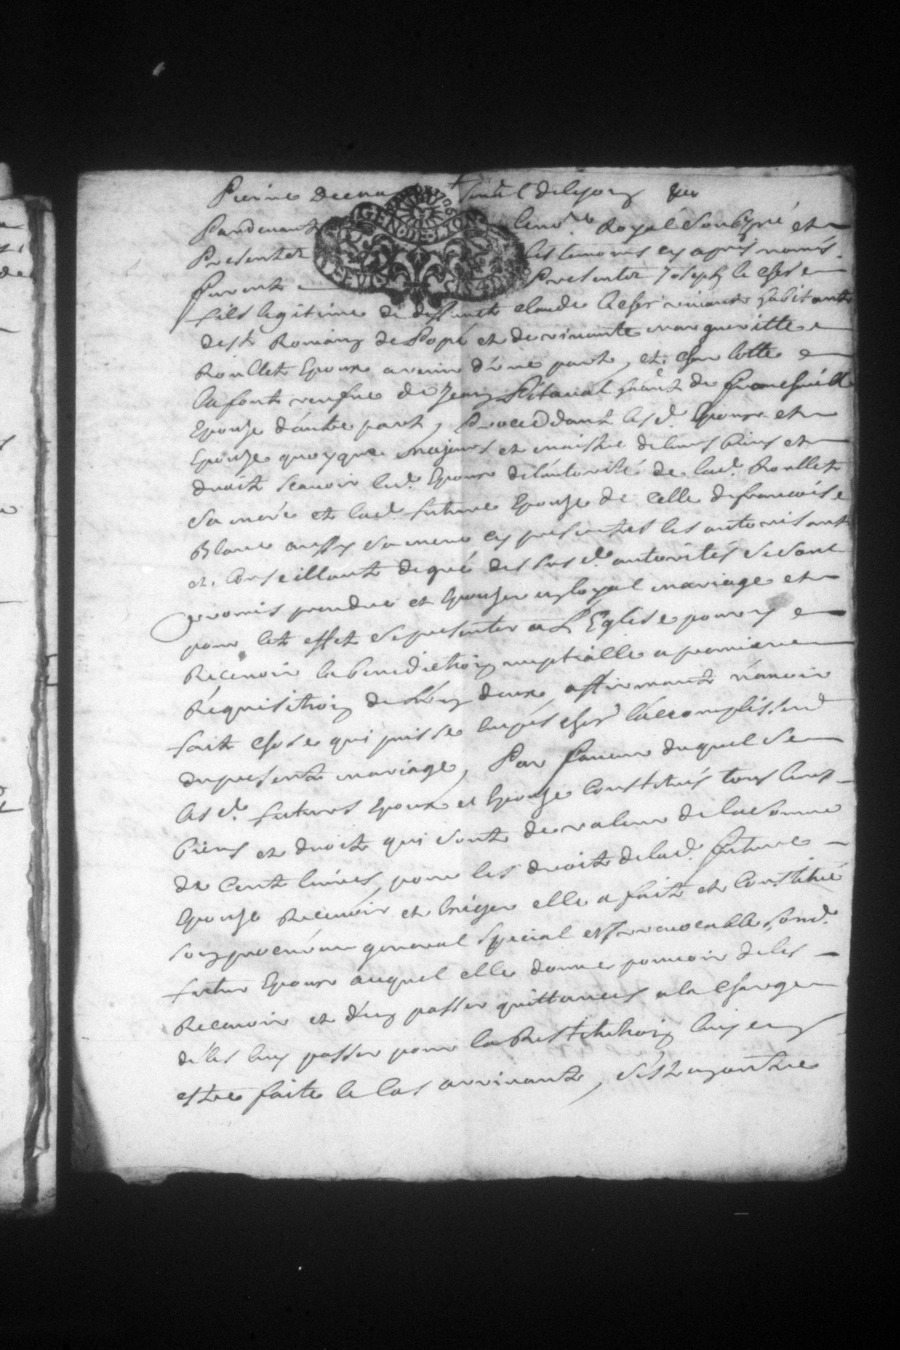 Pierre
Pardevant le no.re Royal soubsigné et
Presentz les temoins cy apres només
furent Presentz Joseph
fils legitime de deffunct claude vivant habitant
de st Romain de Popé et de vivante margueritte
Roullet Epoux avenir d'une part, et charlotte
la font venfve de Jean habt de
Epouze dautre part, Proceddant lesd. Epoux et
Epouze quoyque majeurs et maistre de leurs biens et
droitz scavoir led. Epoux de lautorité de lad. Roullet
sa mere et lad. future Epouze de celle de francoise
Blanc aussy sa mere cy presentes les autorisant
et Conseillant de gré des susd. autorités se sont
promis prendre et Epouzer en loyal mariage et
pour cet effet se presenter a L'Eglise pour y
Recevoir la benediction nuptialle a premiere
Réquisition de L'un deux affirmantz n'avoir
fait chose qui puisse Lacomplissem.t
du present mariage, Par faveur duquel se
lesd. futurs Epoux et Epouze Constitués tous leurs
biens et droitz qui sont de valeur de la somme
de Cent livres, pour les droitz de lad. future
Epouze Recevoir et Exiger elle a fait et Constitué
son procureur general special et irrevocable sond.
futur Epoux auquel elle donne pouvoir de les
Recevoir et d'en passer quittances a la Charge
de les luy passer pour la Restitution luy en
estre faite le Cas arrivant,